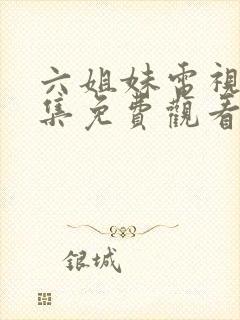 六姐妹電視
集免費觀看
銀城